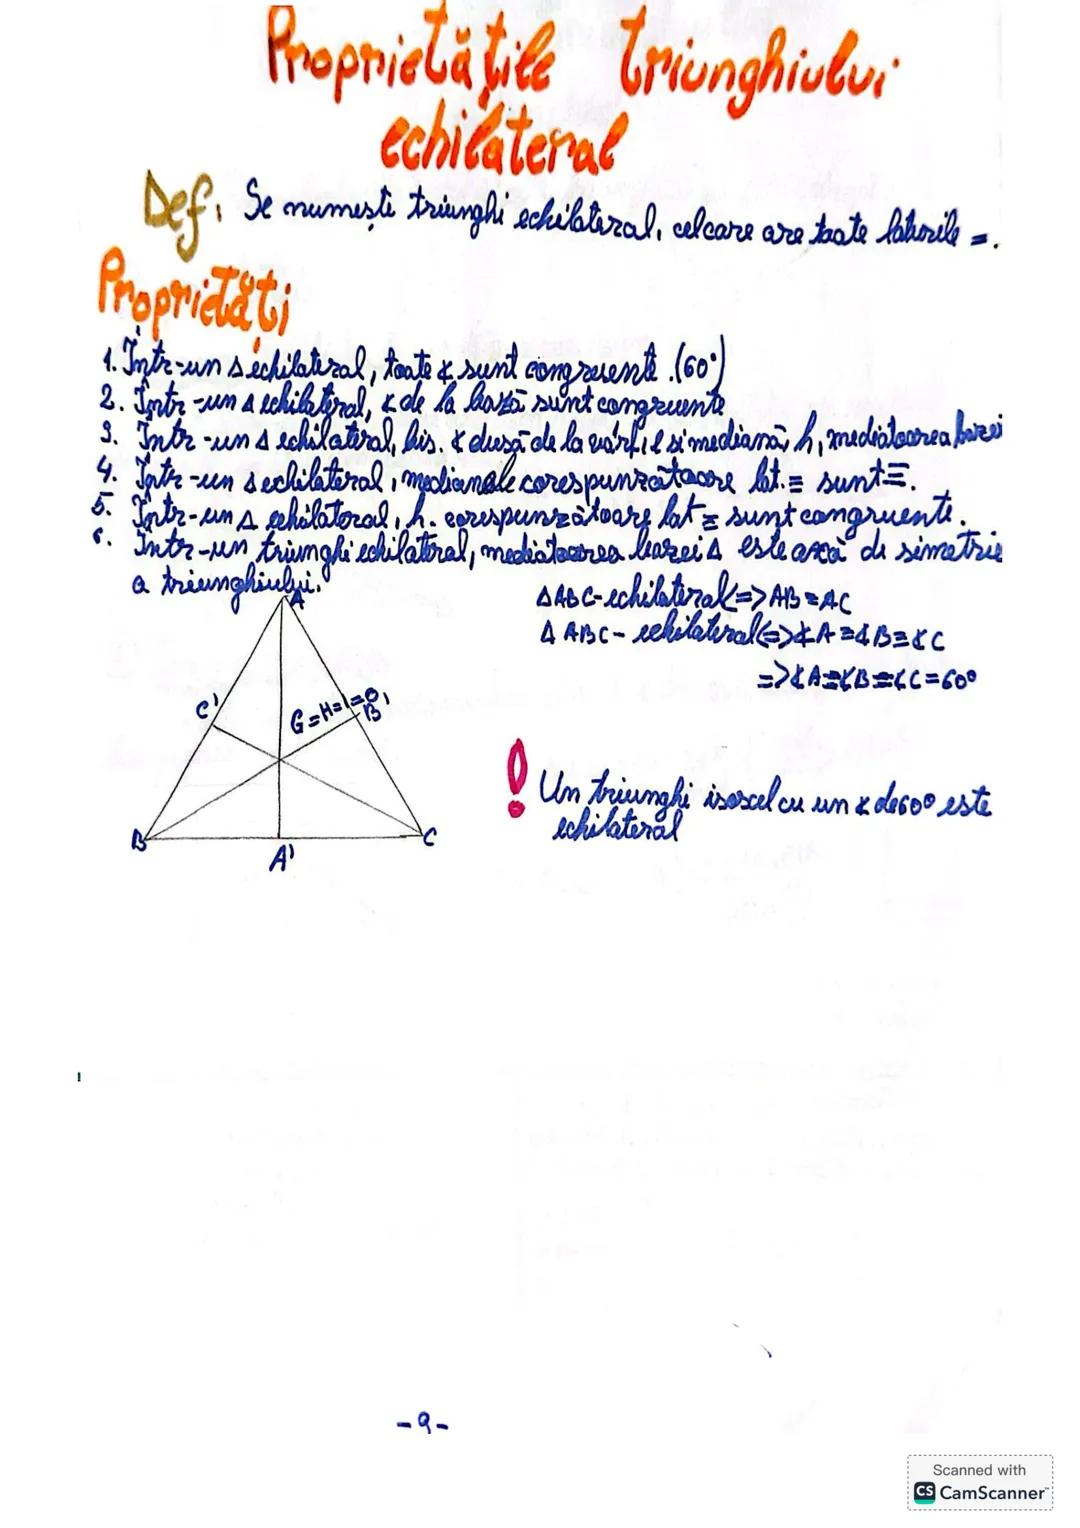 Proprietățile triunghiului
echilateral
Def. Se numește triunghi echilateral, cel care are toate laturile =.
Proprietăți
1. Într-un Δ echilateral, toate ∢ sunt congruente. (60°)
2. Într-un Δ echilateral, ∢ de la bază sunt congruente
3. Într-un Δ echilateral, bis. ∢ dusă de la vârf, e si mediană, h, mediatoarea bazei
4. Într-un Δ echilateral, medianele corespunzătoare lat. ≡ sunt ≡.
5. Într-un Δ echilateral, h. corespunzătoare lat ≡ sunt congruente.
6. Într-un triunghi echilateral, mediatoarea bazei Δ este axă de simetrie
a triunghiului.
ΔABC-echilateral <=> AB≡AC
Δ ABC- echilateral <=> ∢A≡∢B≡∢C
=> ∢A≡∢B≡∢C=60°
A
C'
G=H=I=O
B'
B
A'
C
! Un triunghi isoscel cu un ∢ de 60° este
echilateral
-9-
Scanned with
CS CamScanner